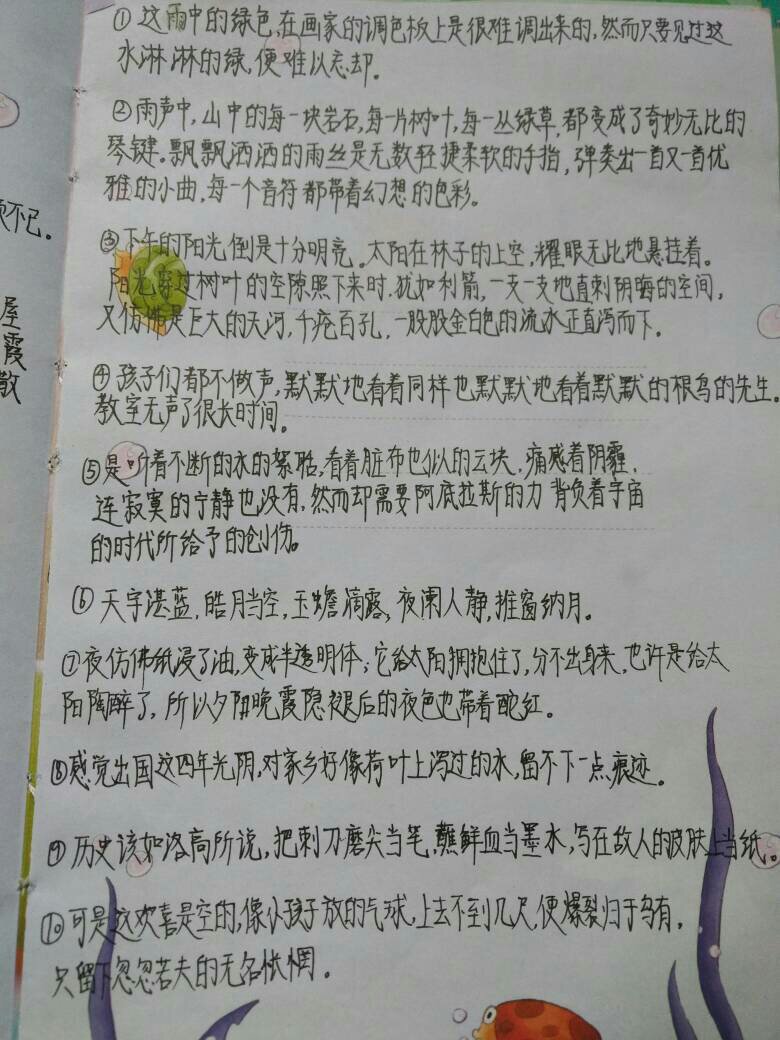 ①这雨中的绿色,在画家的调色板上是很难调出来的,然而只要见过这
水淋淋的绿,便难以忘却.
②雨声中,山中的每一块岩石,每一片树叶,每一丛绿草,都变成了奇妙无比的
琴键.飘飘洒洒的雨丝是无数轻捷柔软的手指,弹奏出一首又一首优
雅的小曲,每一个音符都带着幻想的色彩.
不已。
③下午的阳光倒是十分明亮。太阳在林子的上空,耀眼无比地悬挂着。
阳光穿过树叶的空隙照下来时.犹如利箭,一支一支地直刺阴晦的空间,
又仿佛是巨大的天河,千疮百孔,一股股金白色的流水正直泻而下.
屋
霞
散
④孩子们都不做声,默默地看着同样也默默地看着默默的根鸟的先生.
教室无声了很长时间。
⑤是听着不断的水的絮聒,看着脏布也似的云块,痛感着阴霾,
连寂寞的宁静也没有,然而却需要阿底拉斯的力 背负着宇宙
的时代所给予的创伤。
⑥天宇湛蓝,皓月当空,玉蟾滴露,夜阑人静,推窗纳月。
⑦夜仿佛纸浸了油,变成半透明体;它给太阳拥抱住了,分不出身来,也许是给太
阳陶醉了,所以夕阴晚霞隐褪后的夜色也带着酡红。
⑧感觉出国这四年光阴,对家乡好像荷叶上泻过的水,留不下一点痕迹。
⑨历史该如洛高所说,把刺刀磨尖当笔,蘸鲜血当墨水,写在敌人的皮肤上当纸。
⑩可是这欢喜是空的,像小孩子放的气球,上去不到几尺,便爆裂归于乌有,
只留下忽忽若夫的无名怅惘。